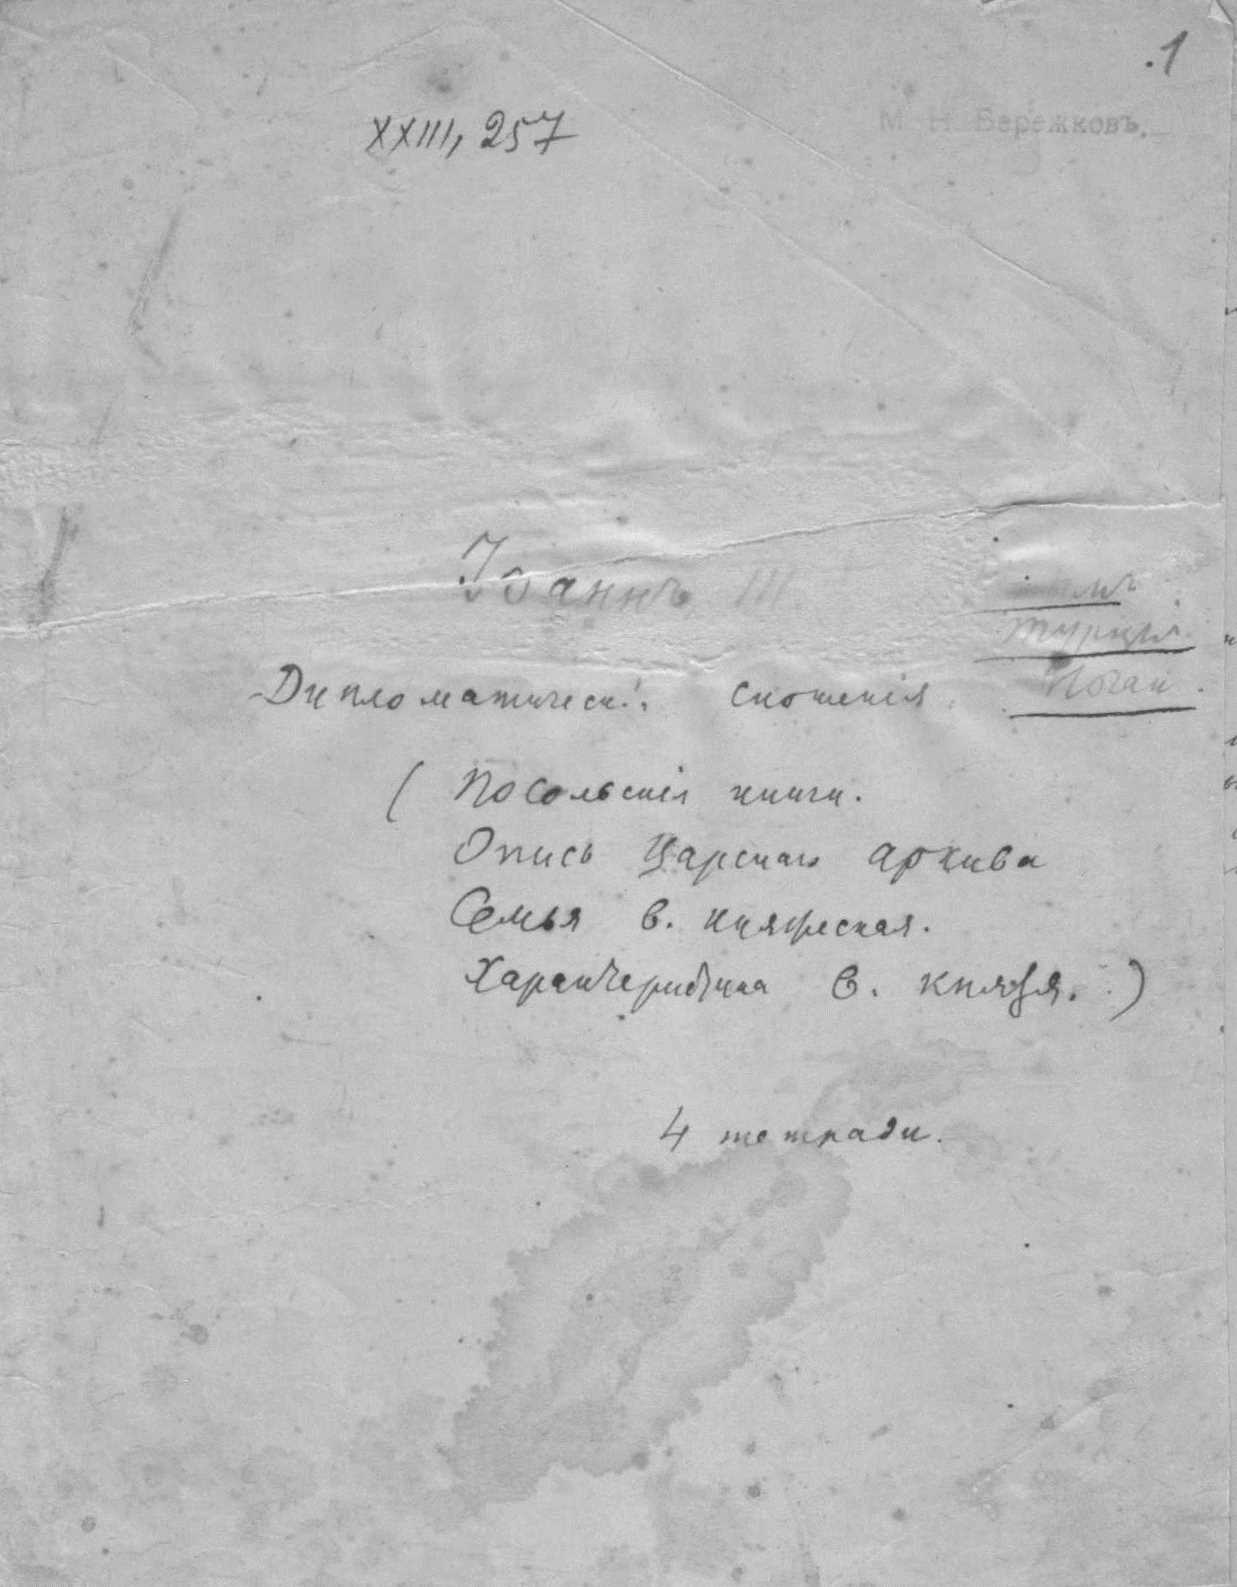 .1
XXIII, 257
М. Н. Бережковъ.
Іоаннъ III
Турція.
Ногаи.
Дипломатическ. сношенія.
( Посольскія книги.
Опись Царскаго архива
Семья в. княжеская.
Характеристика в. князя. )
4 тетради.